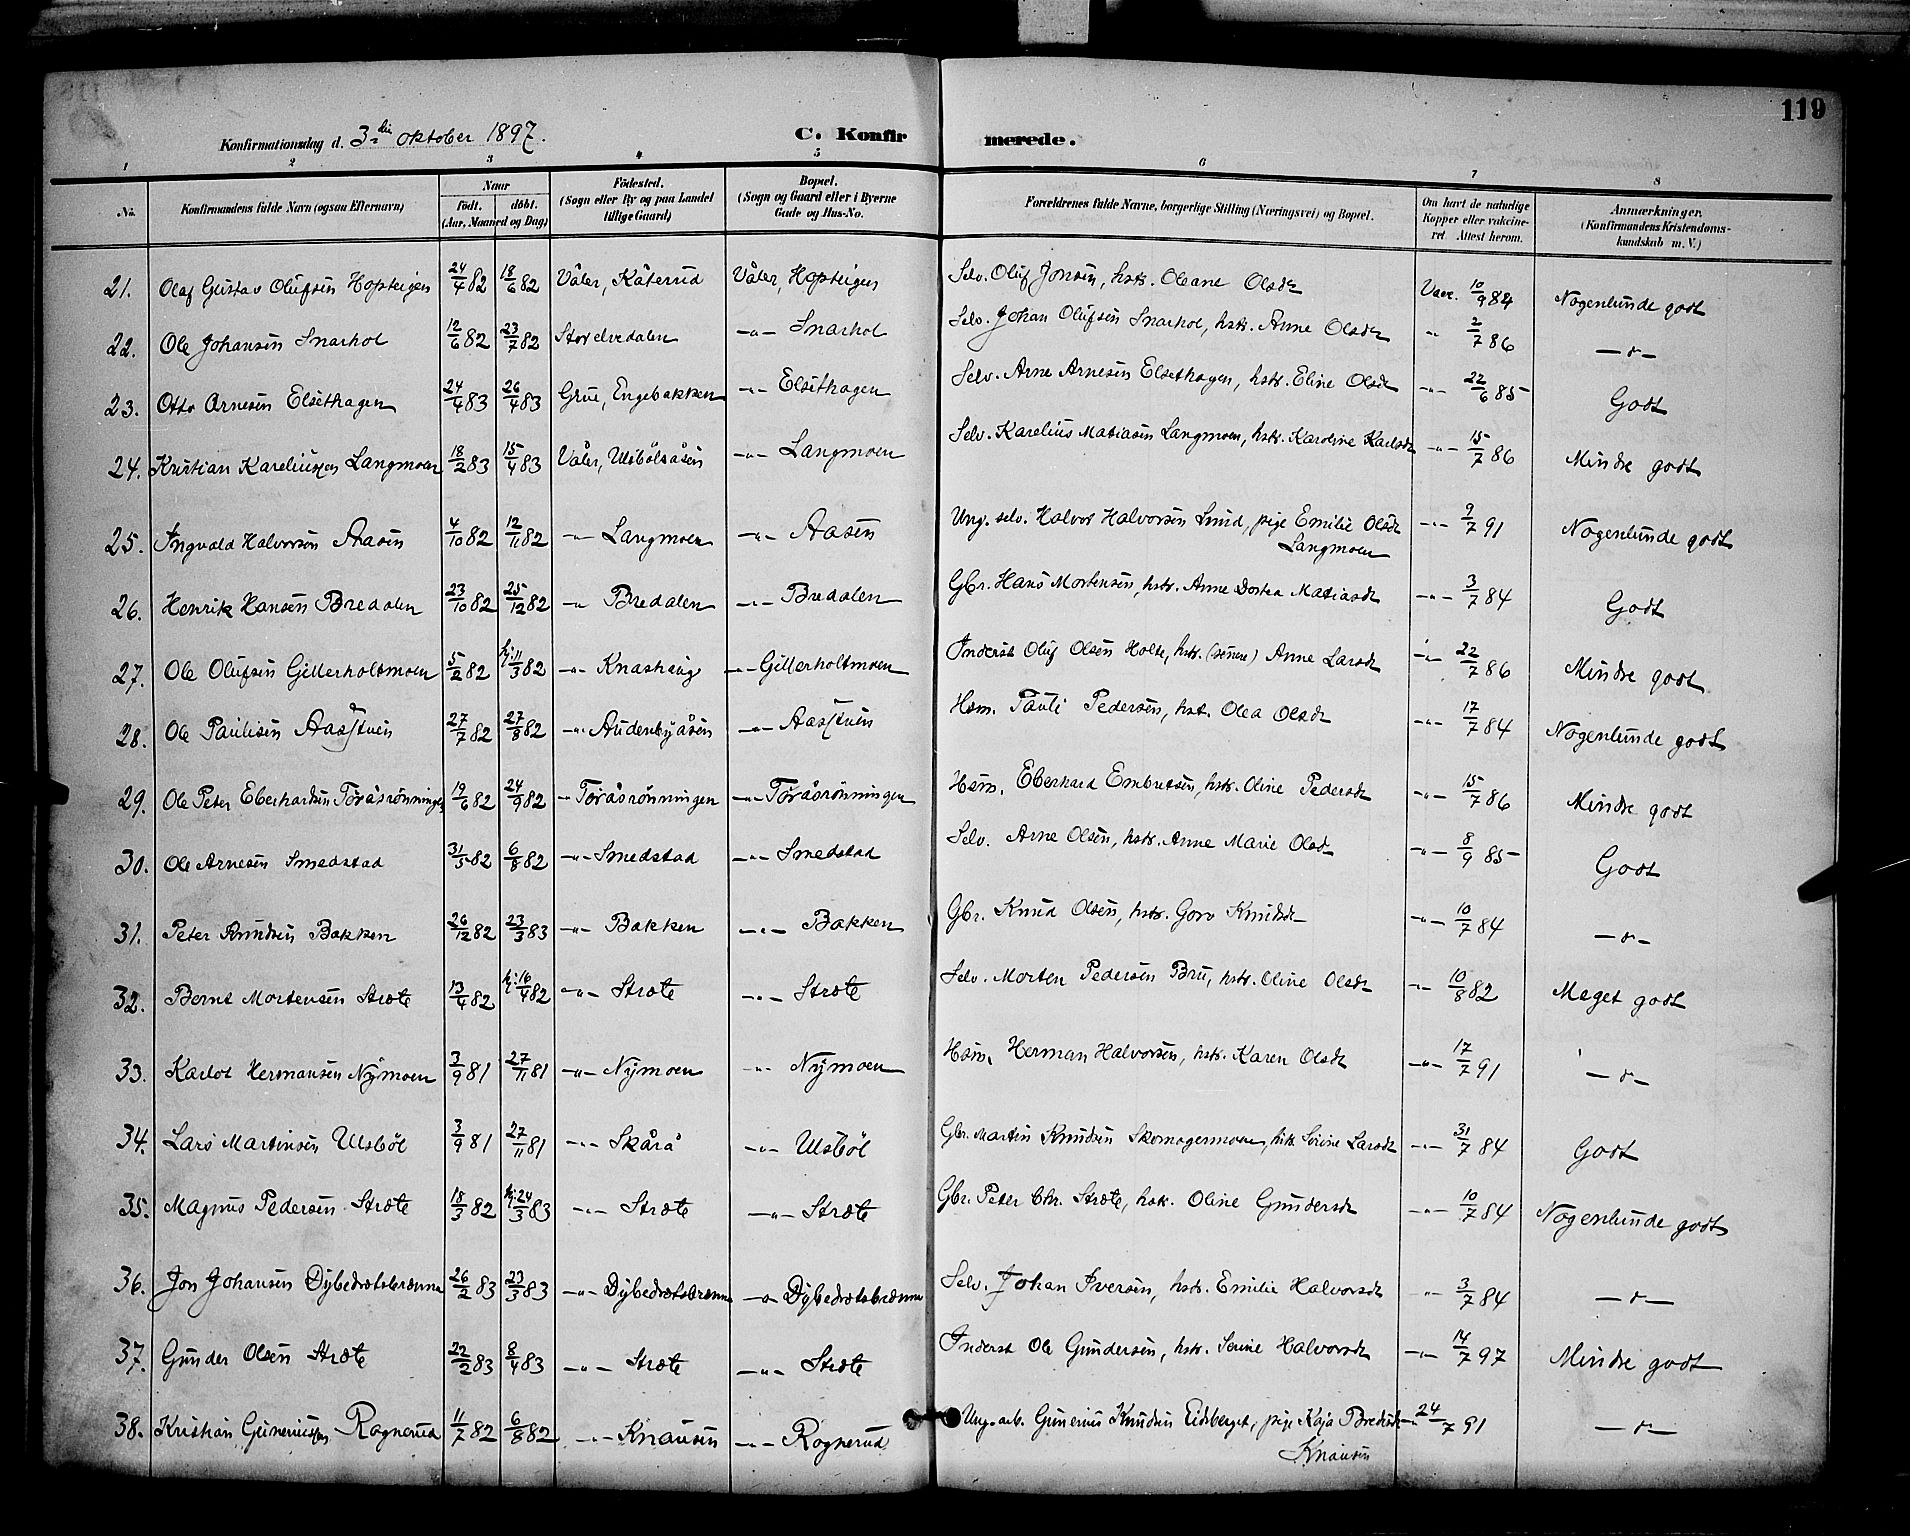 119
Konfirmationsdag d. 3die oktober 1897. C. Konfirmerede.
1 2 3 4 5 6 7 8
No. Konfirmandens fulde Navn (ogsaa Efternavn) Naar födt. döbt. (Aar, Maaned og Dag) Födested. (Sogn eller By og paa Landet tillige Gaard) Bopæl. (Sogn og Gaard eller i Byerne Gade og Hus-No. Forældrenes fulde Navne, borgerlige Stilling (Næringsvei) og Bopæl. Om havt de naturlige Kopper eller vakcineret Attest herom. Anmærkninger. (Konfirmandens Kristendomskundskab m. V.)
21. Olaf Gustav Olufsen Hopsteigen 24/4 82 18/6 82 Våler, Kåterud Våler, Hopsteigen Selv. Oluf Jonsen, hstr. Oleane Olsdr Vacc. 10/9 84 Nogenlunde godt
22. Ole Johansen Snarhol 12/6 82 23/7 82 Storelvedalen -"- Snarhol Selv. Johan Olufsen Snarhol, hstr. Anne Olsdr " 2/7 86 -"-
23. Otto Arnesen Elsethagen 24/4 83 26/4 83 Grue, Engebakken -"- Elsethagen Selv. Arne Arnesen Elsethagen, hstr. Eline Olsdr -"- 22/6 85 Godt
24. Kristian Kareliussen Langmoen 18/2 83 15/4 83 Våler, Ulsbölsåsen -"- Langmoen Selv. Karelius Matiasen Langmoen, hstr. Karoline Karlsdr -"- 15/7 86 Mindre godt
25. Ingvald Halvorsen Aasen 4/10 82 12/11 82 -"- Langmoen -"- Aasen Ung. selv. Halvor Halvorsen Lund, pige Emilie Olsdr Langmoen -"- 9/7 91 Nogenlunde godt
26. Henrik Hansen Bredalen 23/10 82 25/12 82 -"- Bredalen -"- Bredalen Gbr. Hans Mortensen, hstr. Anne Dortea Matiasdr -"- 3/7 84 Godt
27. Ole Olufsen Gillerholtmoen 5/2 82 hj: 11/3 82 -"- Knashaug -"- Gillerholtmoen Inderst Oluf Olsen Holte, hstr. (senere) Anne Larsdr -"- 22/7 86 Mindre godt
28. Ole Paulisen Aasstuen 27/7 82 27/8 82 -"- Audenbyåsen -"- Aasstuen Hsm. Pauli Pedersen, hst. Olea Olsdr -"- 17/7 84 Nogenlunde godt
29. Ole Peter Eberhardsen Toråsrönningen 19/6 82 24/9 82 -"- Toråsrönningen -"- Toråsrönningen Hsm. Eberhard Embretsen, hstr. Oline Pedersdr -"- 15/7 86 Mindre godt
30. Ole Arnesen Smedstad 31/5 82 6/8 82 -"- Smedstad -"- Smedstad Selv. Arne Olsen, hstr. Anne Marie Olsd -"- 8/9 85 Godt
31. Peter Knudsen Bakken 26/12 82 23/3 83 -"- Bakken -"- Bakken Gbr. Knud Olsen, hstr. Goro Knudsdr -"- 10/7 84 -"-
32. Bernt Mortensen Stræte 13/4 82 hj: 16/4 82 -"- Stræte -"- Stræte Selv. Morten Pedersen Bru, hstr. Oline Olsdr -"- 10/8 82 Meget godt
33. Karlot Hermansen Nymoen 3/9 81 27/11 81 -"- Nymoen -"- Nymoen Hsm. Herman Halvorsen, hstr. Karen Olsdr -"- 17/7 91 -"-
34. Lars Martinsen Ulsböl 3/9 81 27/11 81 -"- Skårå -"- Ulsböl Gbr. Martin Knudsen Skomagermoen, hstr. Serine Larsdr -"- 31/7 84 Godt
35. Magnus Pedersen Stræte 18/3 82 hj: 24/3 83 -"- Stræte -"- Stræte Gbr. Peter Chr. Stræte, hstr. Oline Gundersdr -"- 10/7 84 Nogenlunde godt
36. Jon Johansen Dybedrætsbrænna 26/2 83 23/3 83 -"- Dybedrætsbrænna -"- Dybedrætsbrænna Selv. Johan Iversen, hstr. Emilie Halvorsdr -"- 3/7 84 -"-
37. Gunder Olsen Stræte 22/2 83 8/4 83 -"- Stræte -"- Stræte Inderst Ole Gundersen, hstr. Serine Halvorsdr -"- 14/7 97 Mindre godt
38. Kristian Guneriussen Rognerud 11/7 82 6/8 82 -"- Knausen -"- Rognerud Ung. arb. Gunerius Knudsen Eidsberget, pige Kaja Bredesdr Knausen -"- 24/7 91 -"-